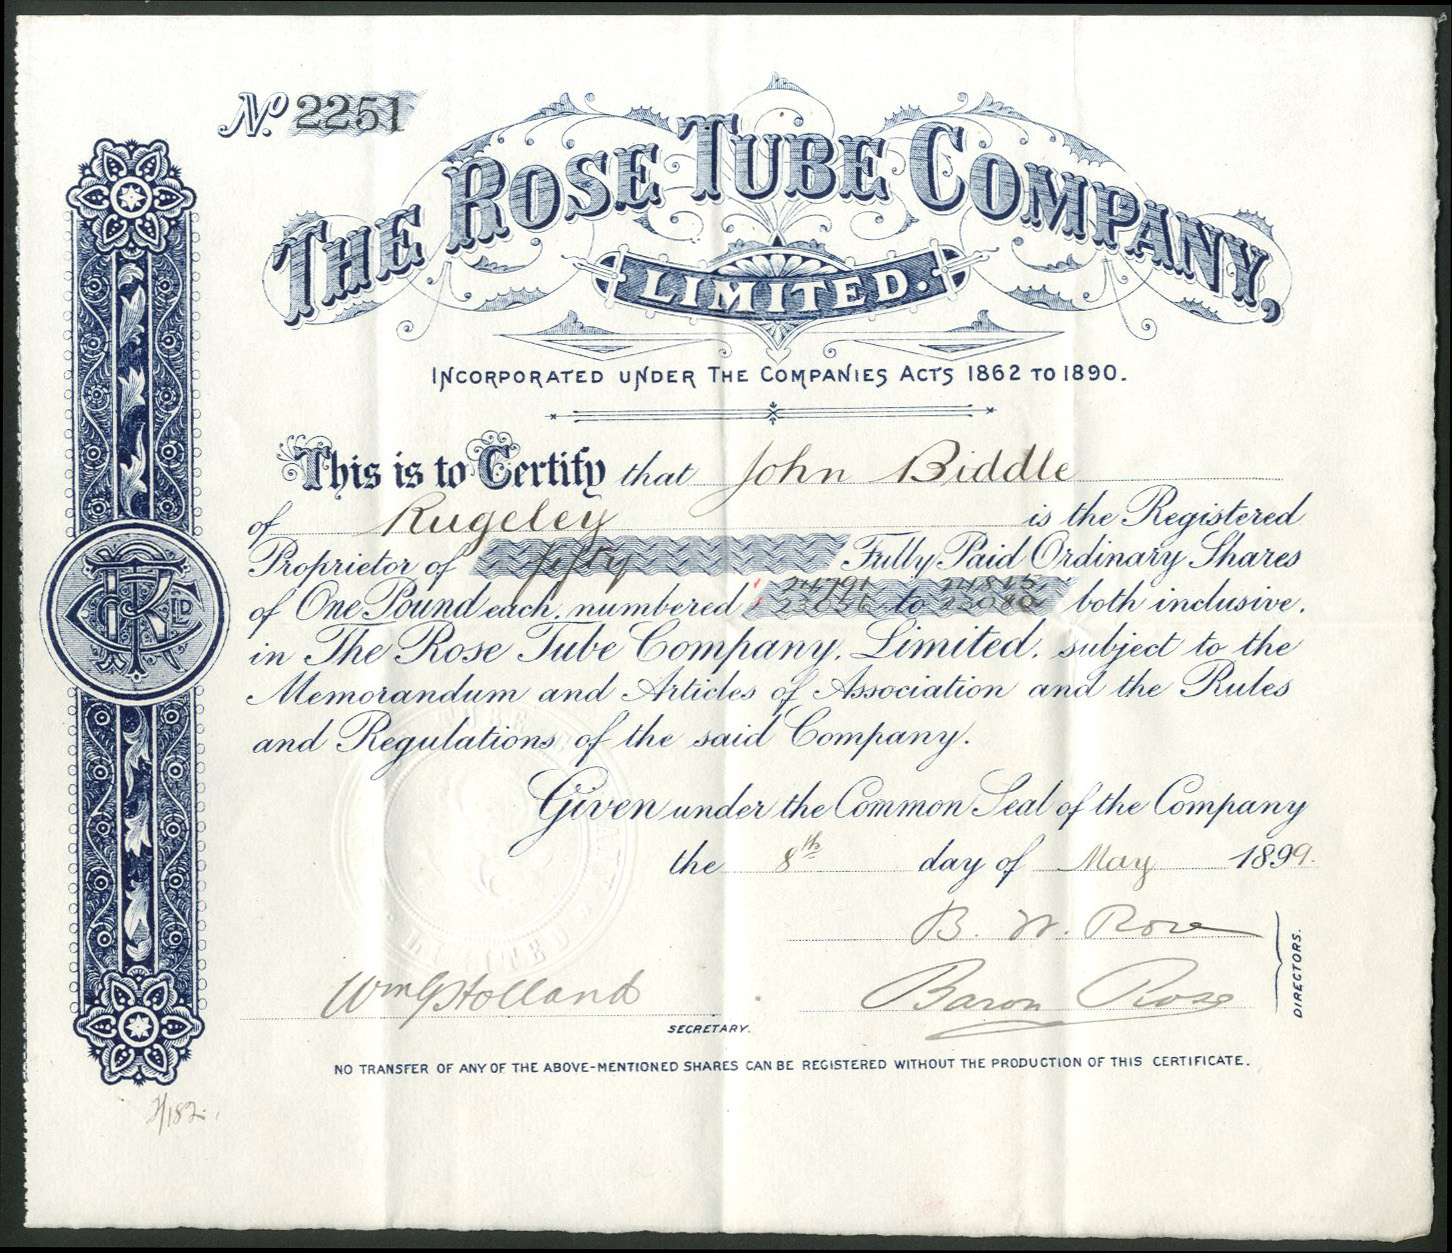 No. 2251
THE ROSE TUBE COMPANY,
LIMITED.
INCORPORATED UNDER THE COMPANIES ACTS 1862 TO 1890.
This is to Certify that John Biddle
of Rugeley is the Registered
Proprietor of fifty Fully Paid Ordinary Shares
24791 24815
of One Pound each, numbered 23056 to 23080 both inclusive,
in The Rose Tube Company, Limited, subject to the
Memorandum and Articles of Association and the Rules
and Regulations of the said Company.
Given under the Common Seal of the Company
the 8th day of May 1899.
B. W. Rose
Baron Rose
DIRECTORS.
Wm G Holland
SECRETARY.
NO TRANSFER OF ANY OF THE ABOVE-MENTIONED SHARES CAN BE REGISTERED WITHOUT THE PRODUCTION OF THIS CERTIFICATE.
LIMITED